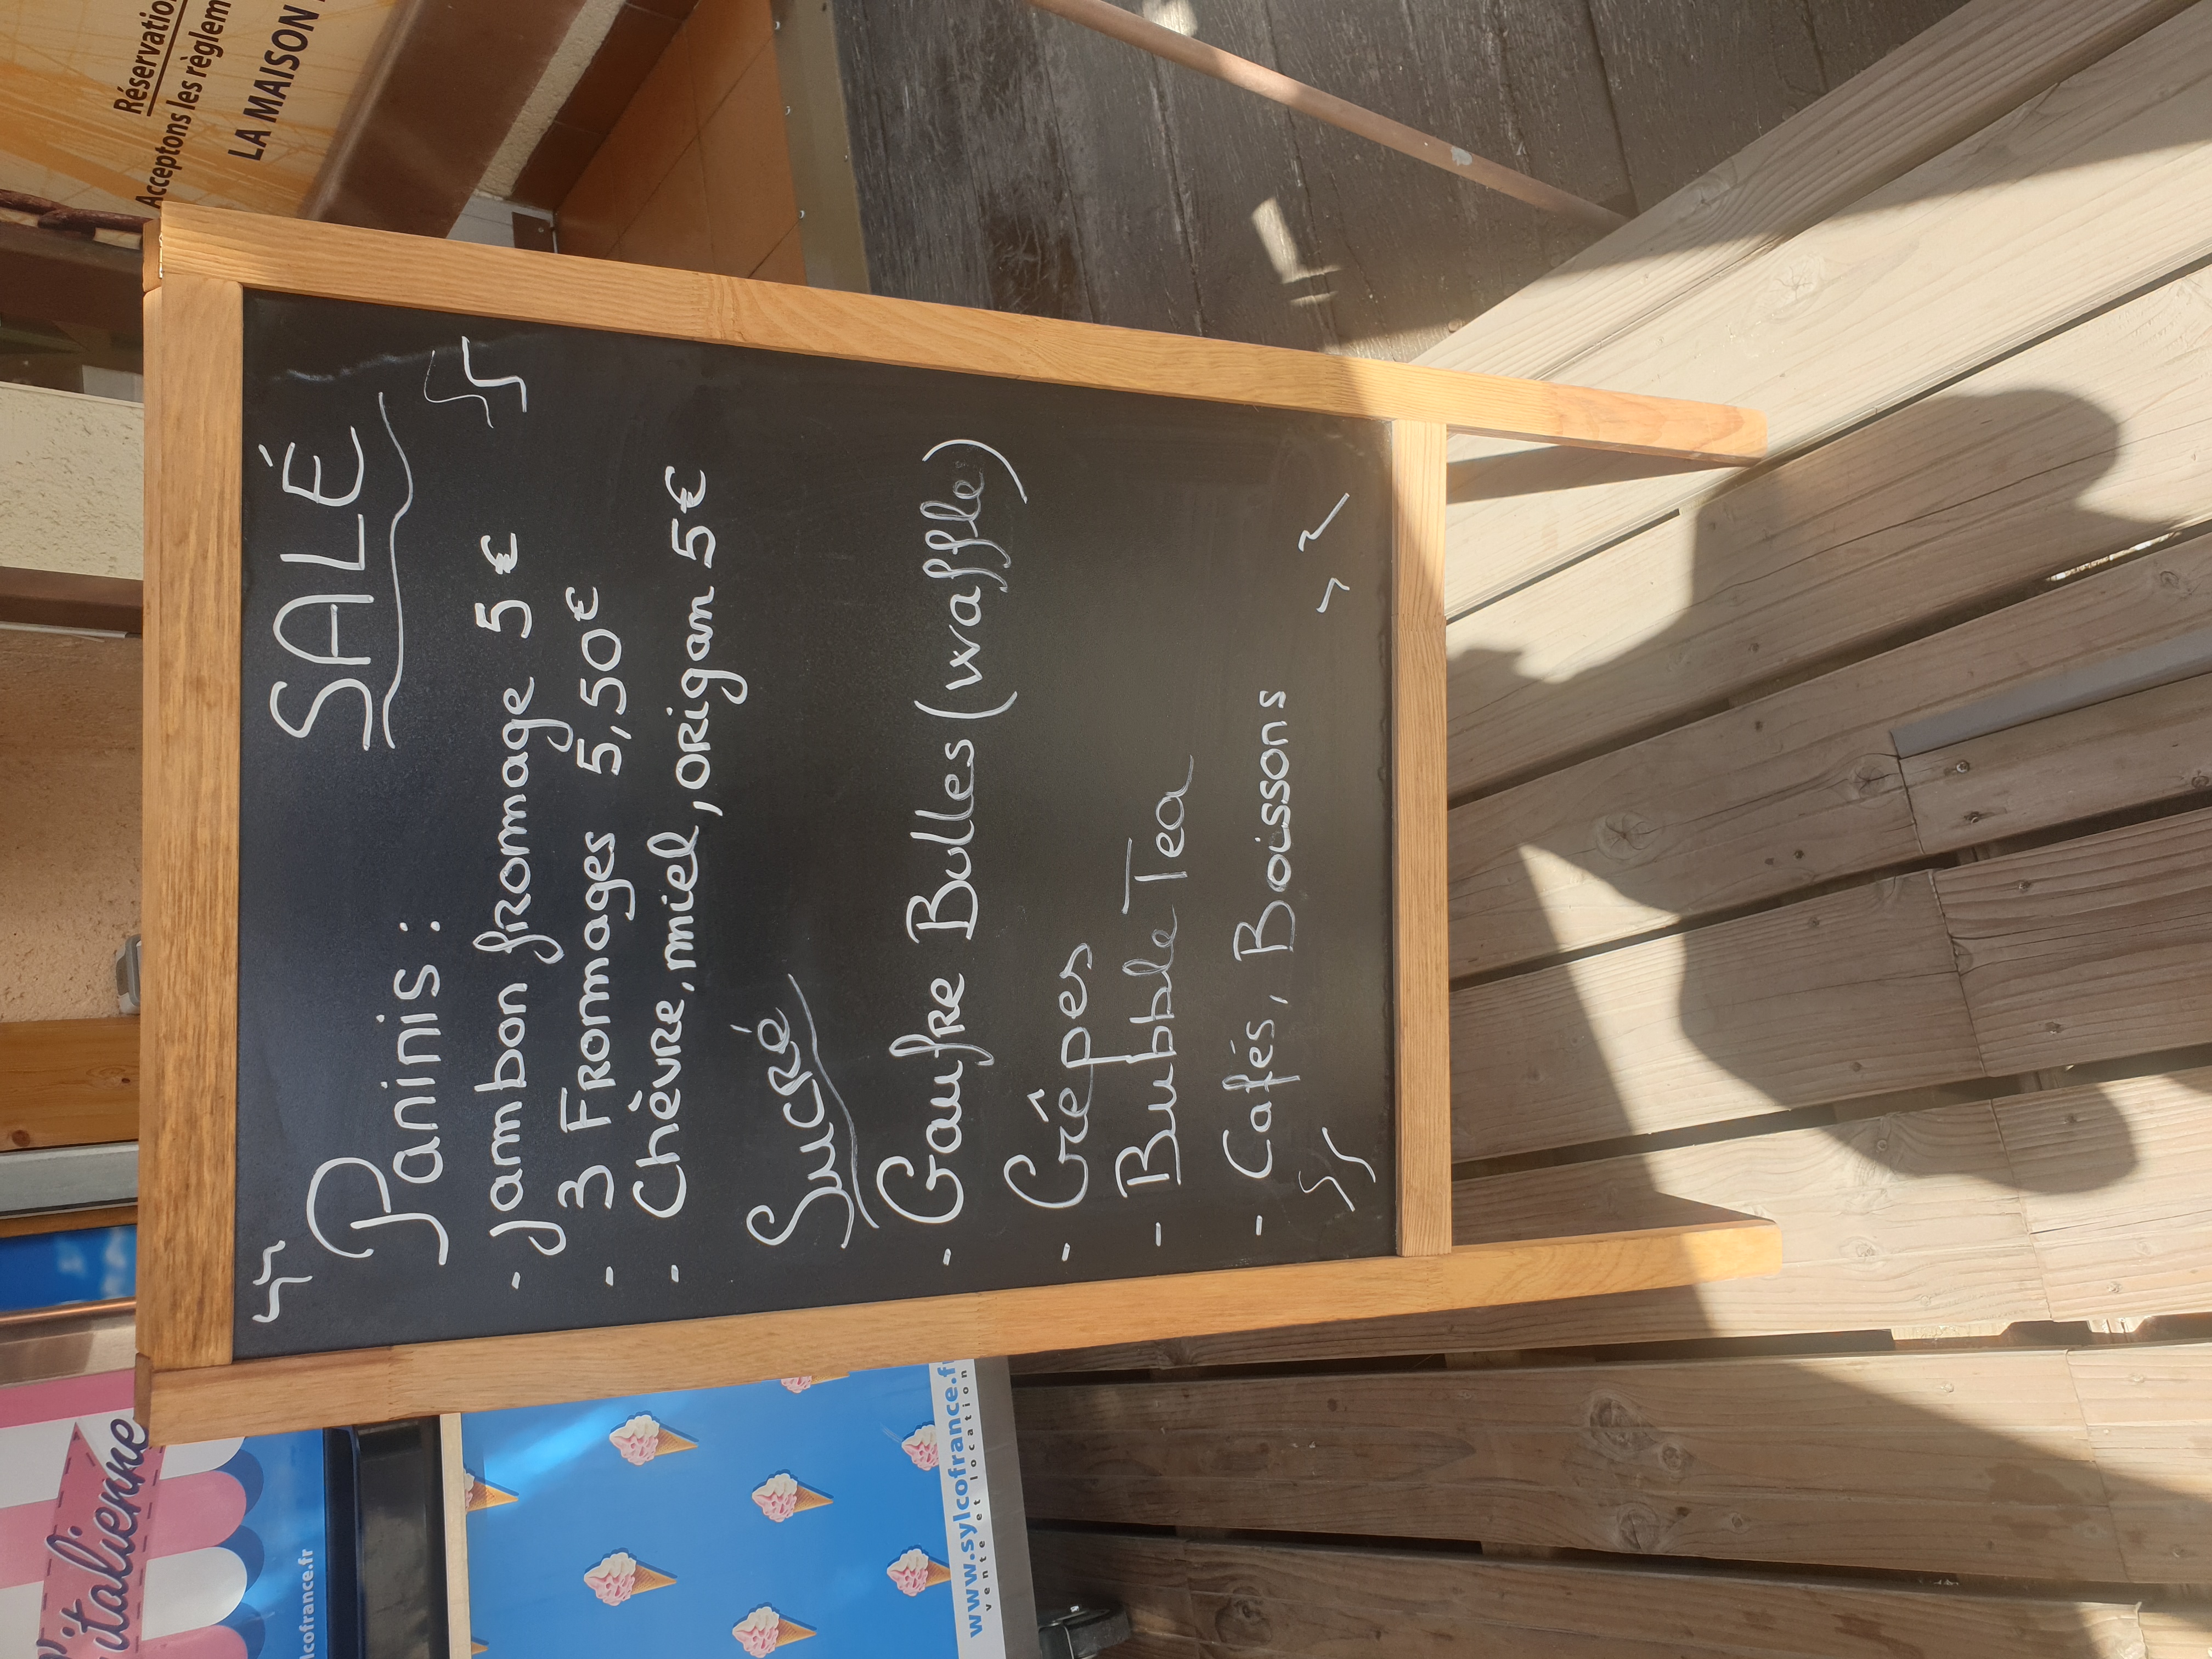 l'italienne
lcofrance.fr
Réservatio
Acceptons les règlem
LA MAISON
SALÉ
Paninis :
- jambon fromage 5 €
- 3 Fromages 5,50€
- Chèvre, miel, origan 5€
Sucré
- Gaufre Bulles (waffle)
- Crêpes
- Bubble Tea
- Cafés, Boissons
www.sylcofrance.fr
vente et location